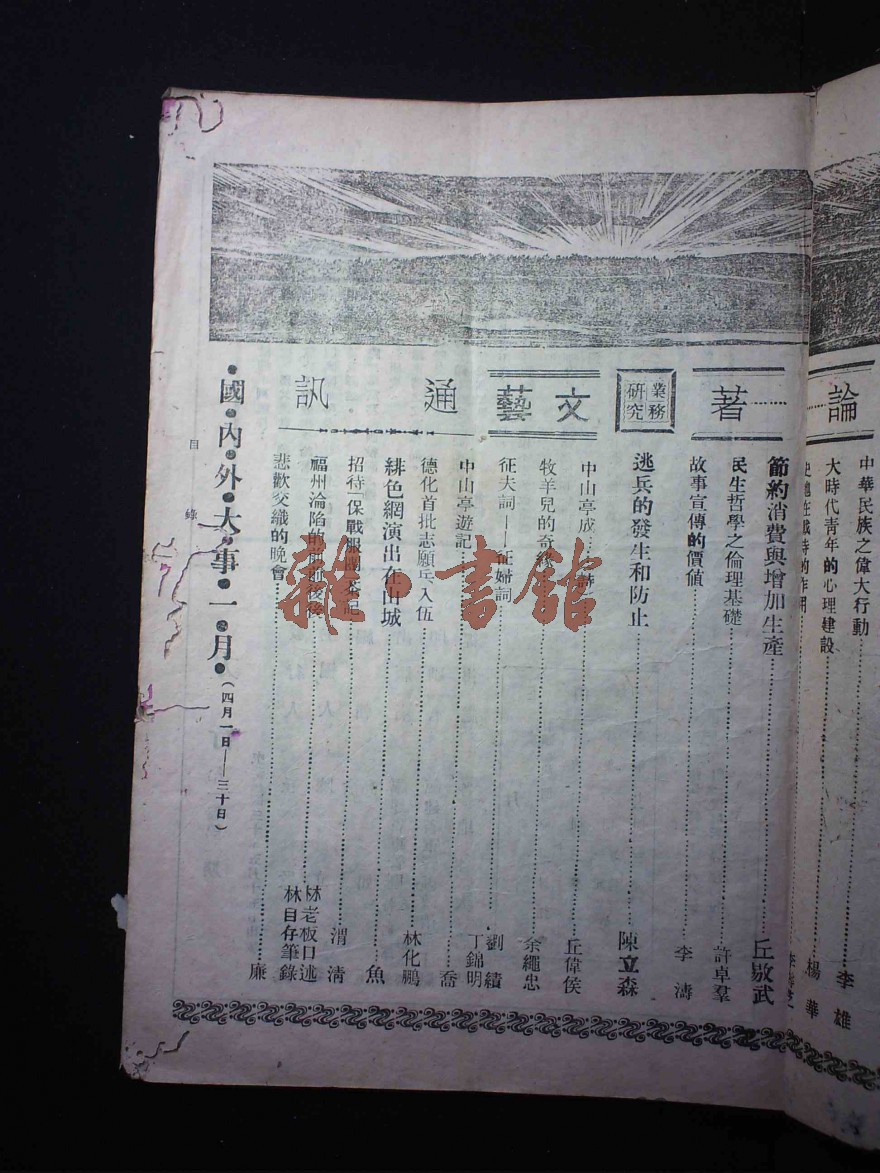 論……著
中華民族之偉大行動……李雄
大時代青年的心理建設……楊華
節約消費與增加生產……丘敖武
民生哲學之倫理基礎……許卓羣
故事宣傳的價值……李濤
業務研究
逃兵的發生和防止……陳立森
文藝
中山亭成……丘偉侯
牧羊兒的奇緣……余繩忠
征夫詞——征婦詞……劉績 丁錦明
通訊
中山亭遊記……喬
德化首批志願兵入伍……林化鵬
緋色網演出在山城……魚
招待「保戰服團茶記……渭清
福州淪陷的前後……林老板口述 林自存筆錄
悲歡交織的晚會……廉
國內外大事一月(四月一日——三十日)
目錄
雜·書館